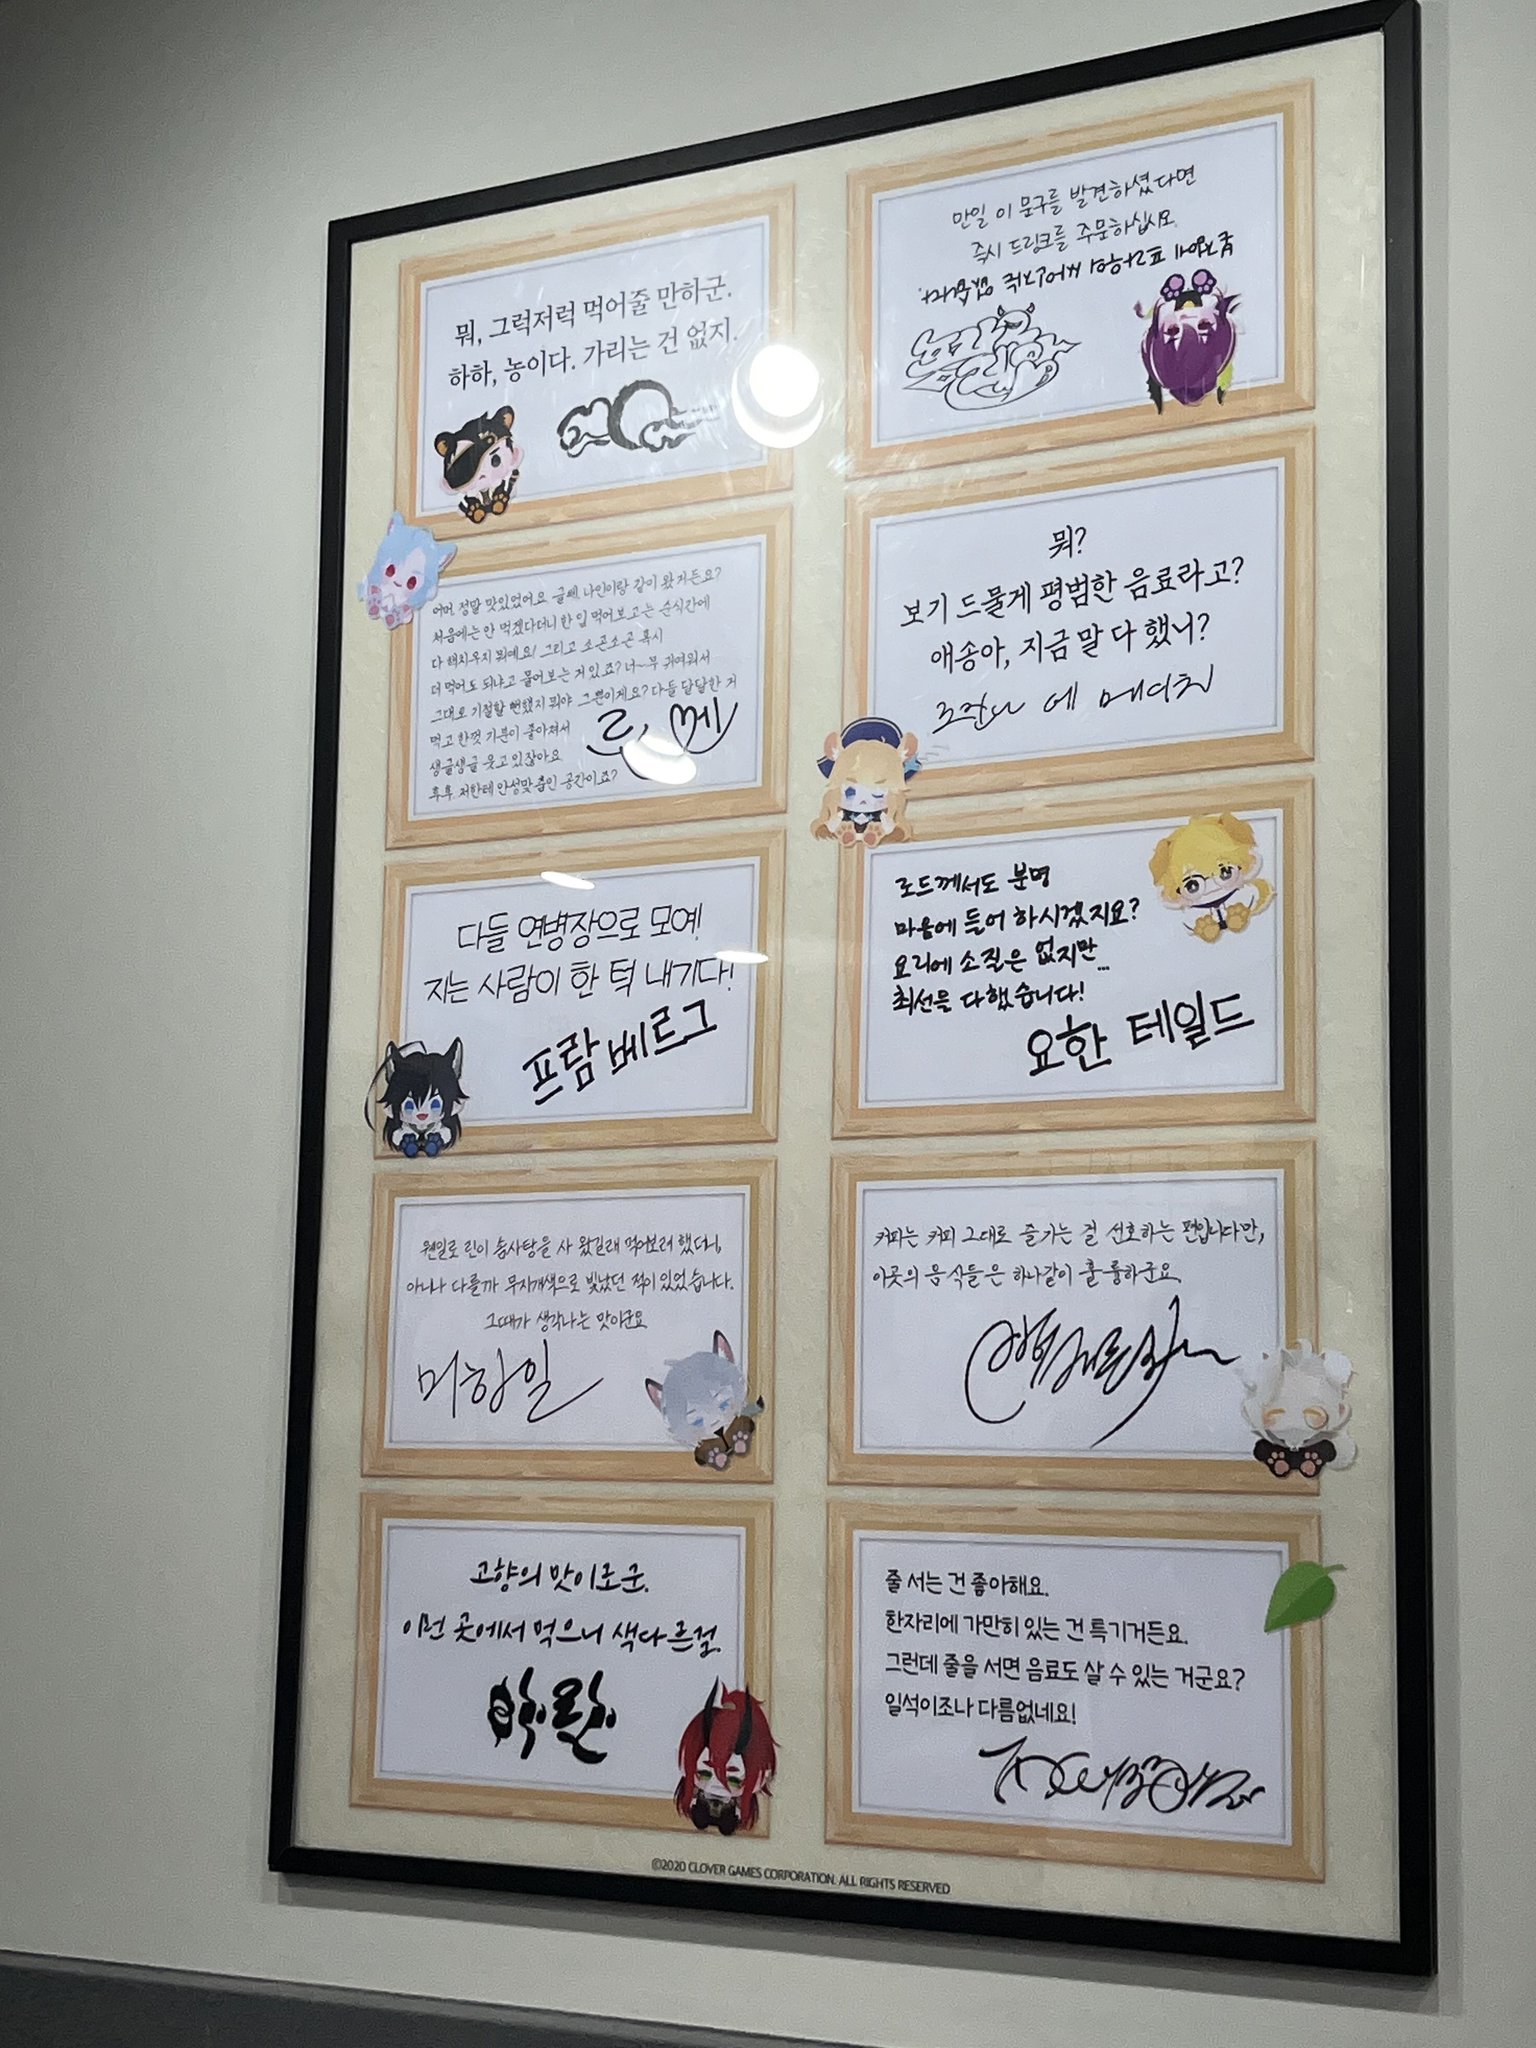 뭐, 그럭저럭 먹어줄 만하군.
하하, 농이다. 가리는 건 없지.
만일 이 문구를 발견하셨다면
즉시 드링크를 주문하십시오.
어머, 정말 맛있었어요. 글쎄, 나인이랑 같이 왔거든요?
처음에는 안 먹겠다더니 한 입 먹어보고는 순식간에
다 해치우지 뭐예요! 그리고 소곤소곤 혹시
더 먹어도 되냐고 물어보는 거 있죠? 너~무 귀여워서
그대로 기절할 뻔했지 뭐야. 그뿐이게요? 다들 달달한 거
먹고 한껏 기분이 좋아져서
생글생글 웃고 있잖아요.
후후. 저한테 안성맞춤인 공간이죠?
로메
뭐?
보기 드물게 평범한 음료라고?
애송아, 지금 말 다 했니?
다들 연병장으로 모여!
지는 사람이 한 턱 내기다!
프람 베르그
로드께서도 분명
마음에 들어 하시겠지요?
요리에 소질은 없지만...
최선을 다했습니다!
요한 테일드
웬일로 린이 솜사탕을 사 왔길래 먹어보려 했더니,
아니나 다를까 무지개색으로 빛났던 적이 있었습니다.
그때가 생각나는 맛이군요.
미하일
커피는 커피 그대로 즐기는 걸 선호하는 편입니다만,
이곳의 음식들은 하나같이 훌륭하군요.
고향의 맛이로군.
이런 곳에서 먹으니 색다른걸.
줄 서는 건 좋아해요.
한자리에 가만히 있는 건 특기거든요.
그런데 줄을 서면 음료도 살 수 있는 거군요?
일석이조나 다름없네요!
©2020 CLOVER GAMES CORPORATION. ALL RIGHTS RESERVED